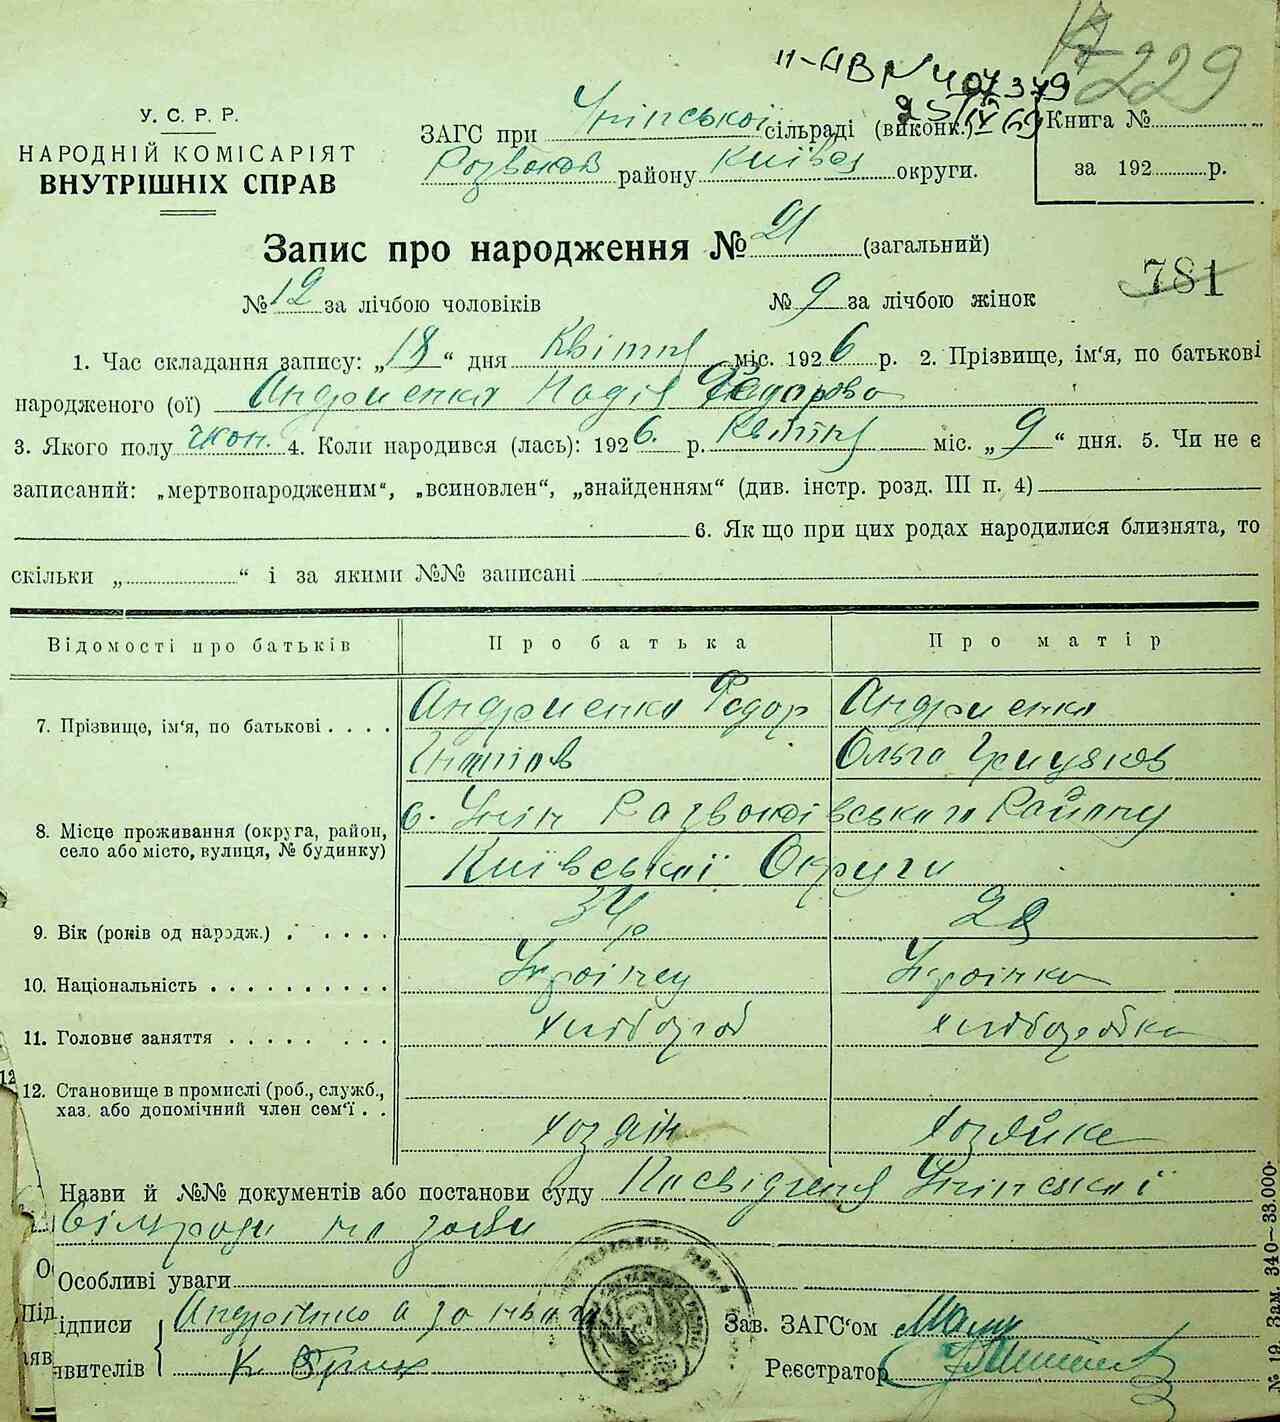 229
II-АВ № 407379
25/IV 69
У. С. Р. Р.
НАРОДНІЙ КОМІСАРІЯТ
ВНУТРІШНІХ СПРАВ
ЗАГС при Унінської сільраді (виконк.)
Розваж району Київськ округи.
Книга №
за 192 р.
Запис про народження № 21 (загальний)
№ 12 за лічбою чоловіків № 9 за лічбою жінок
781
1. Час складання запису: „18“ дня Квітня міс. 1926 р. 2. Прізвище, ім‘я, по батькові
народженого (ої) Андриенко Надія Федорова
3. Якого полу жон. 4. Коли народився (лась): 1926. р. Квітня міс. „9“ дня. 5. Чи не є
записаний: „мертвонародженим“, „всиновлен“, „знайденням“ (див. інстр. розд. III п. 4)
6. Як що при цих родах народилися близнята, то
скільки „ “ і за якими №№ записані
Відомості про батьків Про батька Про матір
7. Прізвище, ім‘я, по батькові Андриенко Федор Андриенко
Ольга Грицьков
8. Місце проживання (округа, район,
село або місто, вулиця, № будинку)
с. Унін Розважівського Району
Київської Округи
9. Вік (років од народж.) 34 28
10. Національність Українец Українка
11. Головне заняття хлібороб хліборобка
12. Становище в промислі (роб., служб.,
хаз. або допомічний член сем‘ї
хозяін хозяйка
Назви й №№ документів або постанови суду Посвідченя Унінської
Сільради
Особливі уваги
Підписи Андрієнко а за
заявителів К.
Зав. ЗАГС‘ом
Реєстратор
№ 19. Зам. 340—33.000.